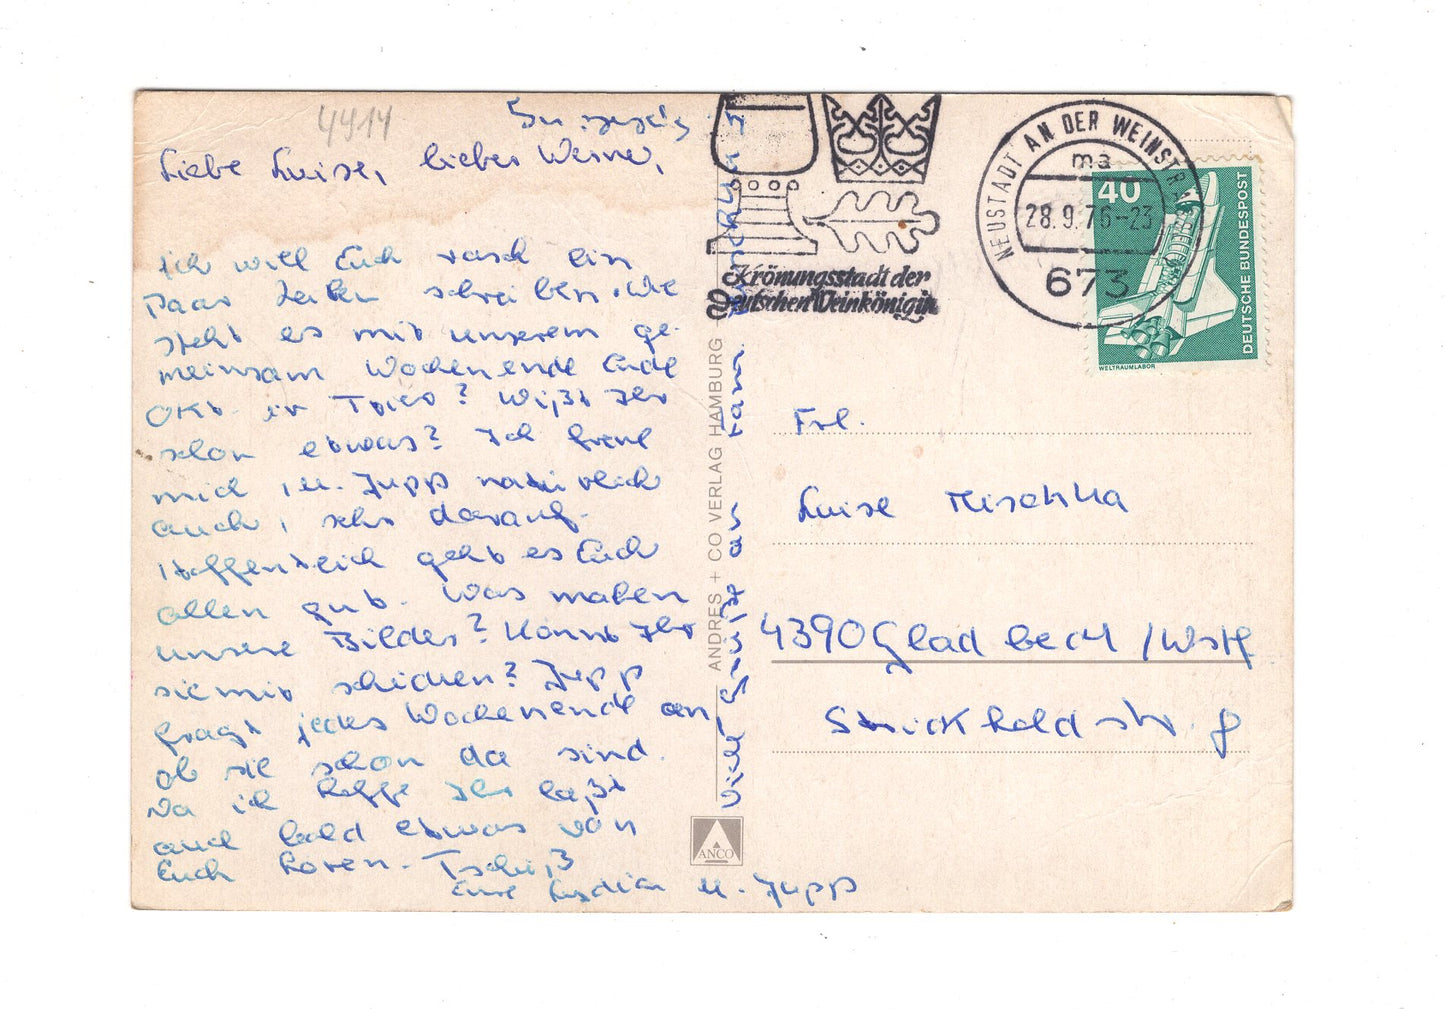 4414
Liebe Luise, lieber Werner,
ich will Euch rasch ein
paar Zeilen schreiben. Wie
steht es mit unserem ge-
meinsam Wochenende Ende
Okt. in Trier? Wißt Ihr
schon etwas? Ich freue
mich, u. Jupp natürlich
auch, sehr darauf.
Hoffentlich geht es Euch
allen gut. Was machen
unsere Bilder? Könnt Ihr
sie mir schicken? Jupp
fragt jedes Wochenende an,
ob sie schon da sind.
Na ich hoffe Ihr laßt
auch bald etwas von
Euch hören. Tschüß
Eure Lydia u. Jupp
Viele Grüße an Fam.
ANDRES + CO VERLAG HAMBURG
ANCO
Krönungsstadt der
Deutschen Weinkönigin
NEUSTADT AN DER WEINSTR
ma
28.9.76-23
673
40
DEUTSCHE BUNDESPOST
WELTRAUMLABOR
Frl.
Luise Mischka
4390 Gladbeck /Wstf